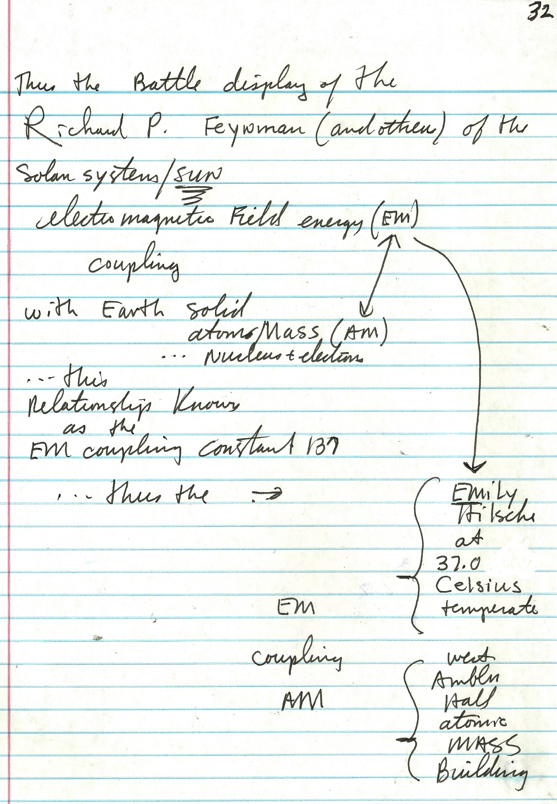 32
Thus the Battle display of the
Richard P. Feynman (and other) of the
Solar systems/sun
electromagnetic Field energy (EM)
coupling
with Earth solid
atoms/Mass (AM)
... Nucleus + electrons
... this
Relationship Known
as the
EM coupling constant 137
... thus the →
Emily
Hilsche
at
37.0
Celsius
temperate
EM
coupling
AM
west
Ambler
Hall
atomic
MASS
Building